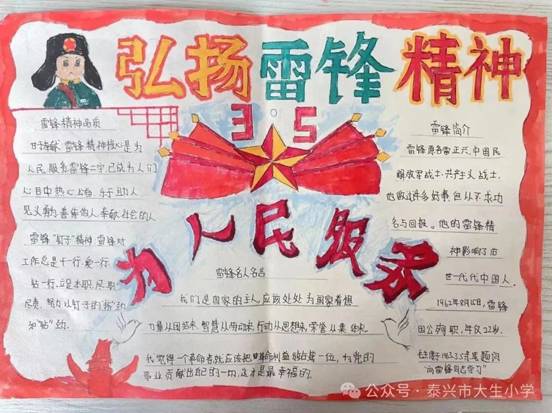 弘扬雷锋精神
3.5
为人民服务
雷锋精神品质
甘于奉献 雷锋精神核心是为
人民服务 雷锋二字已成为人们
心目中热心公益 乐于助人
见义勇为 善良做人 奉献社会的人
雷锋“钉子”精神 雷锋对
工作总是干一行 爱一行
钻一行 立足本职 尽职
尽责 努力以钉子的“挤”劲
和“钻”劲。
雷锋名人名言
我们是国家的主人,应该处处为国家着想
力量从团结来,智慧从劳动来,行动从思想来,荣誉从集体来。
我觉得一个革命者就应该把革命利益放在第一位,为党的
事业贡献出自己的一切,这才是最幸福的。
雷锋简介
雷锋 原名雷正兴,中国民
解放军战士·共产主义战士。
他做过许多好事但从不求功
名与回报。他的雷锋精
神影响了后
世一代代中国人。
1962年8月15日,雷锋
因公殉职,年仅22岁。
毛主席1963.3.5号题词
“向雷锋同志学习”
公众号·泰兴市大生小学